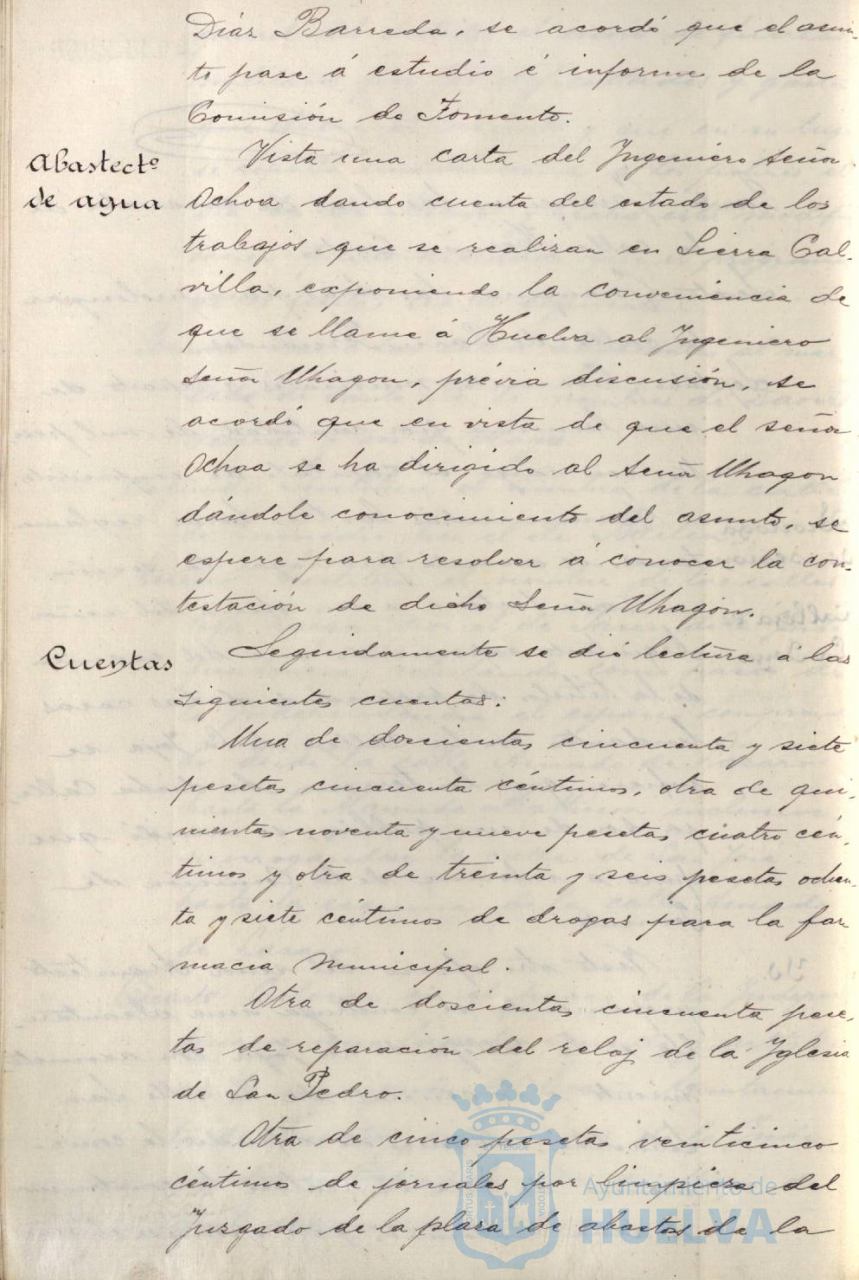 Diáz Barreda, se acordó que el asun-
to pase á estudio é informe de la
Comisión de Fomento.
Abastectº
de agua
Vista una carta del Ingeniero señor
Ochoa dando cuenta del estado de los
trabajos que se realizan en Sierra Cal-
villa, exponiendo la conveniencia de
que se llame á Huelva al Ingeniero
señor Uhagon, prévia discusión, se
acordó que en vista de que el señor
Ochoa se ha dirigido al señor Uhagon
dándole conocimiento del asunto, se
espere para resolver á conocer la con-
testación de dicho Señor Uhagón.
Cuentas
Seguidamente se dió lectura á las
siguientes cuentas:
Una de doscientas cincuenta y siete
pesetas cincuenta céntimos, otra de qui-
nientas noventa y nueve pesetas cuatro cén-
timos y otra de treinta y seis pesetas ochen-
ta y siete céntimos de drogas para la far
macia Municipal.
Otra de doscientas cincuenta pese-
tas de reparación del reloj de la Yglesia
de San Pedro.
Otra de cinco pesetas veinticinco
céntimos de jornales por limpieza del
Juzgado de la plaza de abastos de la
Ayuntamiento de
HUELVA